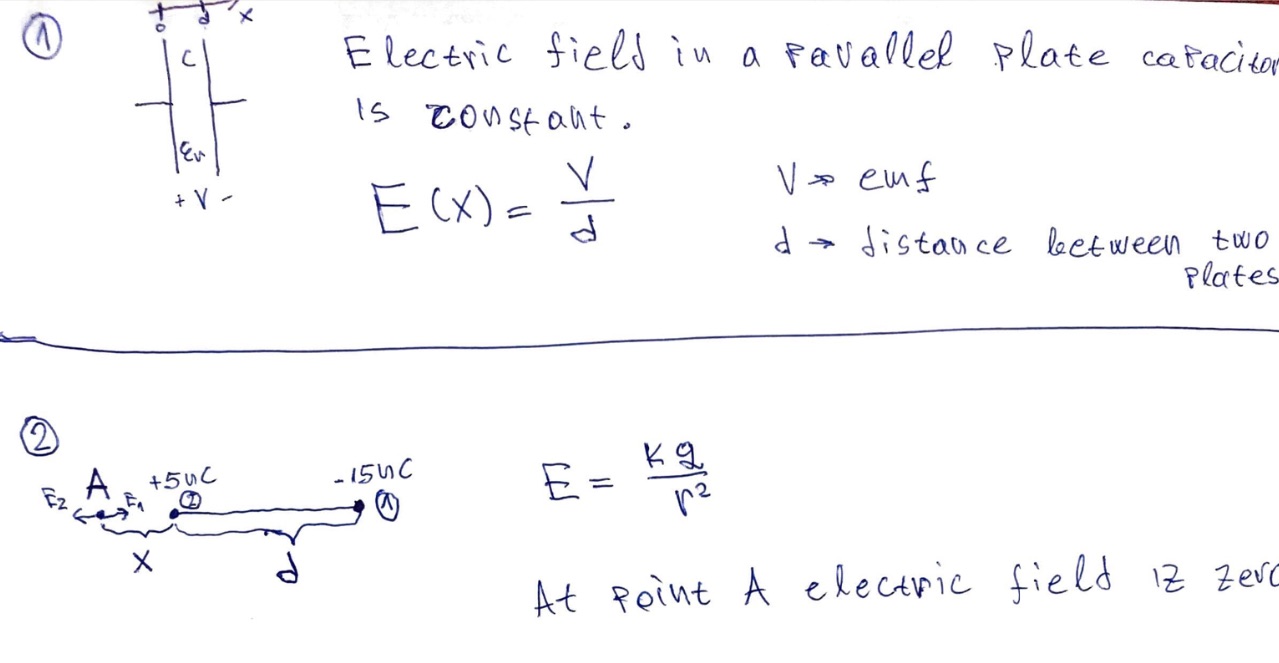 ①
0 d x
C
Er
+ V -
Electric field in a parallel plate capacitor
is constant.
E(x) = V/d
V → emf
d → distance between two
plates
②
A +5nC -15nC
E2 E1 ② ①
x d
E = kq/r²
At point A electric field iz zero